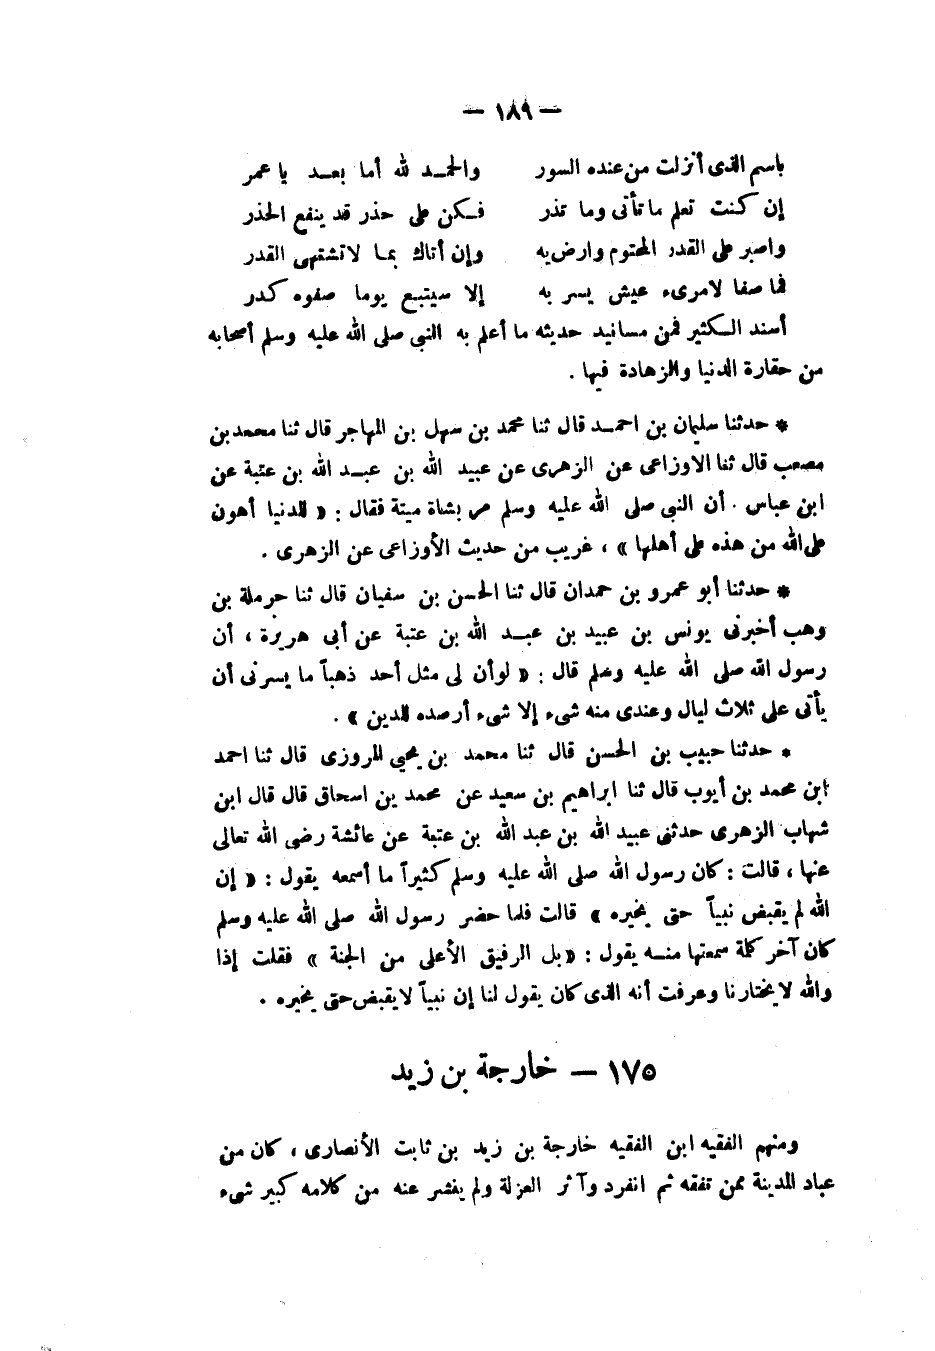 — ١٨٩ —
باسم الذى أنزلت من عنده السور والحمــد لله أما بعــد يا عمر
إن كنت تعلم ما تأتى وما تذر فــكن على حذر قد ينفع الحذر
واصبر على القدر المحتوم وارض به وإن أتاك بمـا لا تشتهى القدر
فما صفا لامرىء عيش يسر به إلا سيتبع يوما صفوه كدر
أسند الــكثير فمن مسانيد حديثه ما أعلم به النبى صلى الله عليه وسلم أصحابه
من حقارة الدنيا والزهادة فيها .
* حدثنا سليمان بن احمــد قال ثنا محمد بن سهل بن المهاجر قال ثنا محمد بن
مصعب قال ثنا الاوزاعى عن الزهرى عن عبيد الله بن عبــد الله بن عتبة عن
ابن عباس . أن النبى صلى الله عليه وسلم مر بشاة ميتة فقال : « للدنيا أهون
على الله من هذه على أهلها » ، غريب من حديث الأوزاعى عن الزهرى .
* حدثنا أبو عمرو بن حمدان قال ثنا الحسن بن سفيان قال ثنا حرملة بن
وهب أخبرنى يونس بن عبيد بن عبــد الله بن عتبة عن أبى هريرة ، أن
رسول الله صلى الله عليه وسلم قال : « لو أن لى مثل أحد ذهباً ما يسرنى أن
يأتى على ثلاث ليال وعندى منه شىء إلا شىء أرصده للدين » .
* حدثنا حبيب بن الحسن قال ثنا محمد بن يحيى المروزى قال ثنا احمد
ابن محمد بن أيوب قال ثنا ابراهيم بن سعيد عن محمد بن اسحاق قال قال ابن
شهاب الزهرى حدثنى عبيد الله بن عبد الله بن عتبة عن عائشة رضى الله تعالى
عنها ، قالت : كان رسول الله صلى الله عليه وسلم كثيراً ما أسمعه يقول : « إن
الله لم يقبض نبياً حتى يخيره » قالت فلما حضر رسول الله صلى الله عليه وسلم
كان آخر كلمة سمعتها منــه يقول : « بل الرفيق الأعلى من الجنة » فقلت إذا
والله لا يختارنا وعرفت أنه الذى كان يقول لنا إن نبياً لا يقبض حتى يخيره .
١٧٥ — خارجة بن زيد
ومنهم الفقيه ابن الفقيه خارجة بن زيد بن ثابت الأنصارى ، كان من
عباد المدينة ممن تفقه ثم انفرد وآثر العزلة ولم يفشر عنه من كلامه كبير شىء